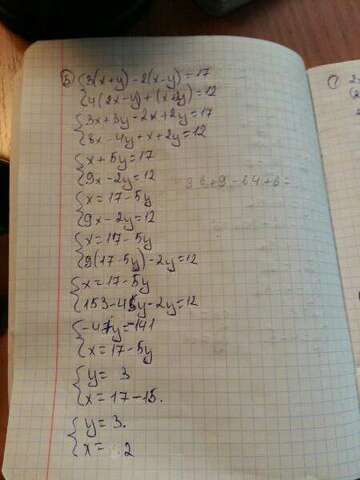 5) { 3(x+y)-2(x-y)=17
{ 4(2x-y)+(x+2y)=12
{ 3x+3y-2x+2y=17
{ 8x-4y+x+2y=12
{ x+5y=17
{ 9x-2y=12
{ x=17-5y
{ 9x-2y=12
{ x=17-5y
{ 9(17-5y)-2y=12
{ x=17-5y
{ 153-45y-2y=12
{ -47y=-141
{ x=17-5y
{ y= 3
{ x=17-15.
{ y=3.
{ x= 2